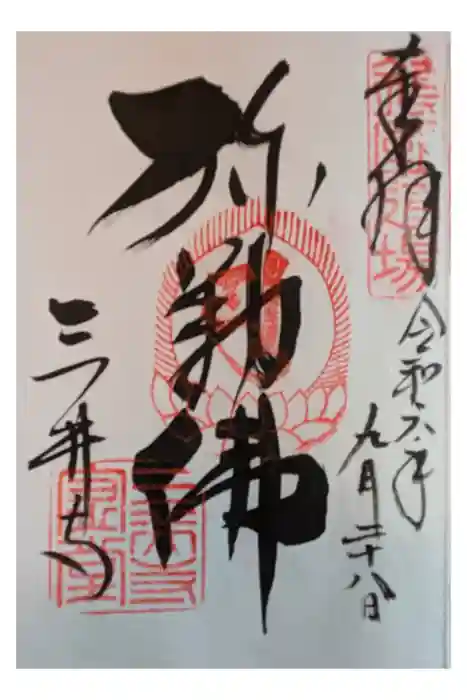 奉拝
令和六年
九月二十八日
弥勒佛
三井寺